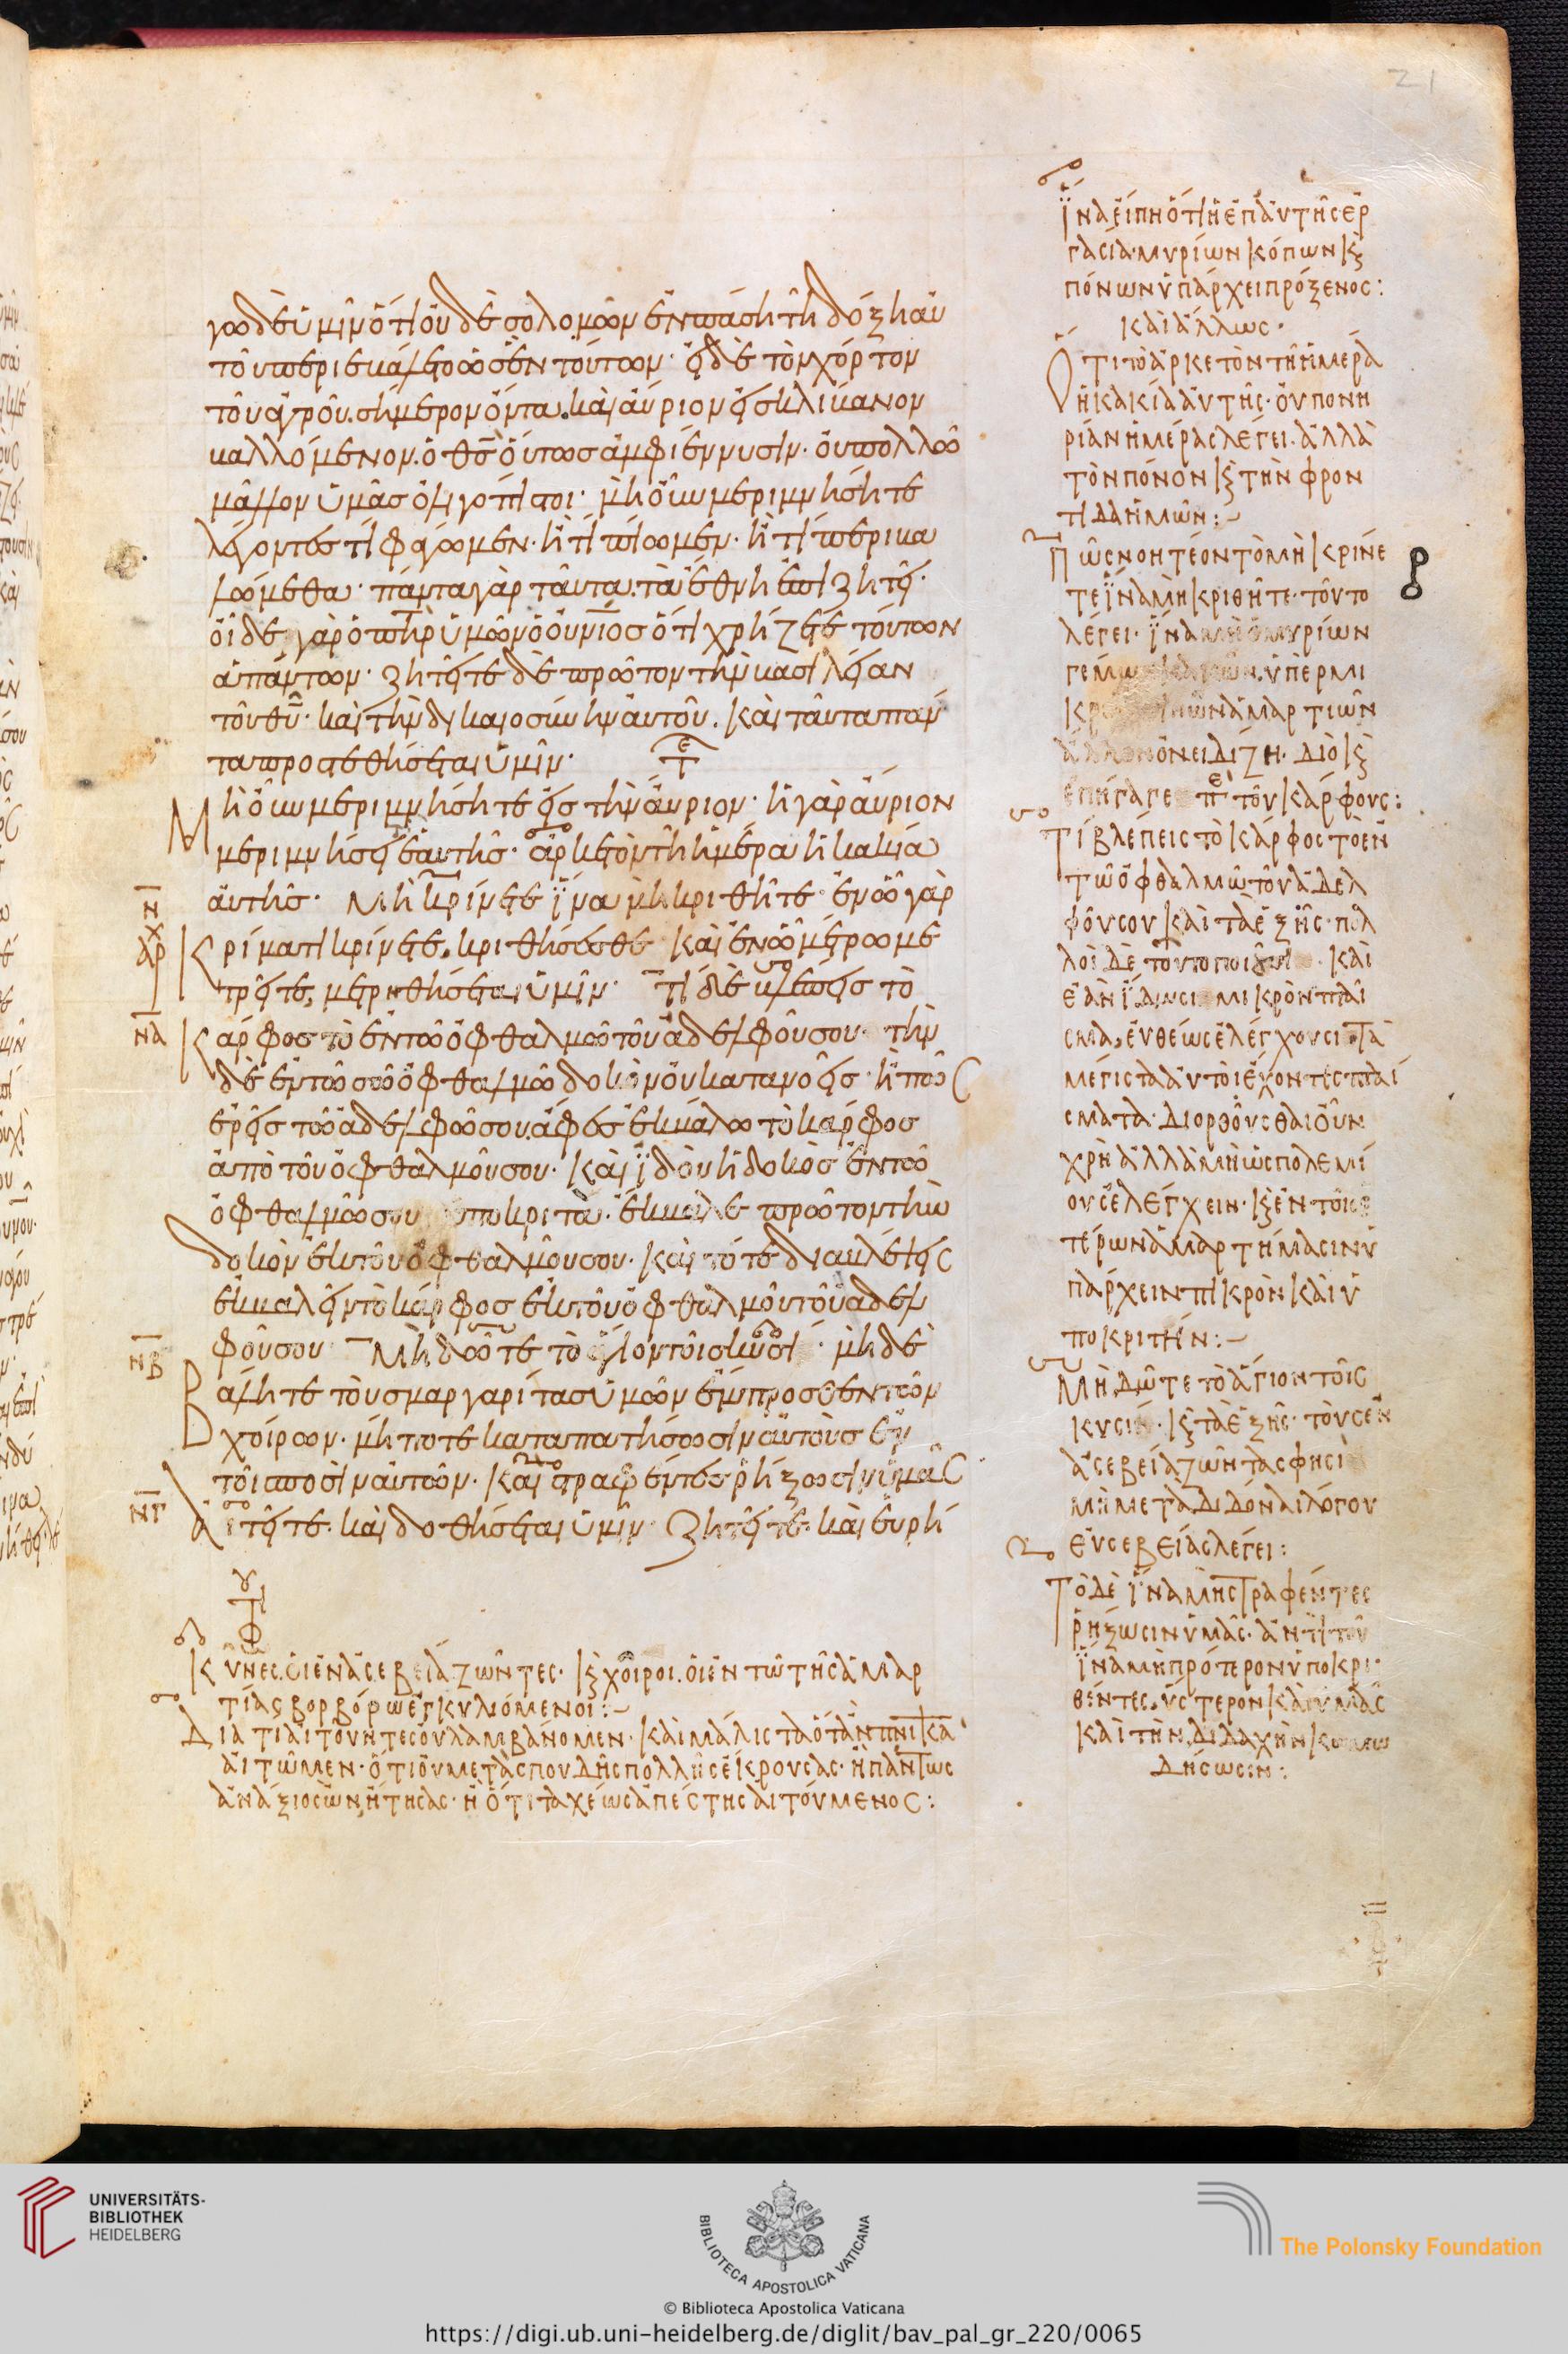 21
γω δὲ ὑμῖν ὅτι οὐδὲ σολομῶν ἐν πάσῃ τῇ δόξῃ αὐ
τοῦ περιεβάλετο ὡς ἓν τούτων· εἰ δὲ τὸν χόρτον
τοῦ ἀγροῦ. σήμερον ὄντα. καὶ αὔριον εἰς κλίβανον
βαλλόμενον. ὁ θς οὕτως ἀμφιέννυσιν. οὐ πολλῷ
μᾶλλον ὑμᾶς ὀλιγόπιστοι· μὴ οὖν μεριμνήσητε
λέγοντες τί φάγωμεν· ἢ τί πίωμεν· ἢ τί περιβα
λώμεθα· πάντα γὰρ ταῦτα. τὰ ἔθνη ἐπιζητεῖ·
οἶδε γὰρ ὁ πηρ ὑμῶν ὁ οὐνιος ὅτι χρήζετε τούτων
ἁπάντων· ζητεῖτε δὲ πρῶτον τὴν βασιλείαν
τοῦ θυ· καὶ τὴν δικαιοσύνην αὐτοῦ. καὶ ταῦτα πάν
τα προστεθήσεται ὑμῖν·
Μὴ οὖν μεριμνήσητε εἰς τὴν αὔριον· ἡ γὰρ αὔριον
μεριμνήσει ἑαυτῆς· ἀρκετὸν τῇ ἡμέρᾳ ἡ κακία
αὐτῆς· Μὴ κρίνετε ἵνα μὴ κριθῆτε· ἐν ᾧ γὰρ
Ν
Κρίματι κρίνετε. κριθήσεσθε καὶ ἐν ᾧ μέτρῳ με
τρεῖτε, μετρηθήσεται ὑμῖν· Τί δὲ βλέπεις τὸ
ΝΑ
Κάρφος τὸ ἐν τῷ ὀφθαλμῷ τοῦ ἀδελφοῦ σου· τὴν
δὲ ἐν τῷ σῷ ὀφθαλμῷ δοκὸν οὐ κατανοεῖς· ἢ πῶς
ἐρεῖς τῷ ἀδελφῷ σου. ἄφες ἐκβάλω τὸ κάρφος
ἀπὸ τοῦ ὀφθαλμοῦ σου· καὶ ἰδοὺ ἡ δοκὸς ἐν τῷ
ὀφθαλμῷ σου ὑποκριτὰ· ἔκβαλε πρῶτον τὴν
δοκὸν ἐκ τοῦ ὀφθαλμοῦ σου· καὶ τότε διαβλέψεις
ἐκβαλεῖν τὸ κάρφος ἐκ τοῦ ὀφθαλμοῦ τοῦ ἀδελ
ΝΒ
φοῦ σου Μὴ δῶτε τὸ ἅγιον τοῖς κυσὶ· μὴ δὲ
Βάλητε τοὺς μαργαρίτας ὑμῶν ἔμπροσθεν τῶν
χοίρων· μήποτε καταπατήσωσιν αὐτοὺς ἐν
τοῖς ποσὶν αὐτῶν. καὶ στραφέντες ῥήξωσιν ὑμᾶς
ΝΓ
Αἰτεῖτε. καὶ δοθήσεται ὑμῖν· Ζητεῖτε. καὶ εὑρή
Κύνες. οἱ ἐν ἀσεβείᾳ ζῶντες· κ χοῖροι. οἱ ἐν τῷ τῆς ἁμαρ
τίας βορβόρω ἐγκυλιόμενοι:
Διατι αἰτοῦντες οὐ λαμβάνομεν· καὶ μάλιστα ὅτὰν πνικὰ
αἰτῶμεν· ὅτι οὐ μετὰ σπουδῆς πολλῆς ἔκρουσας· ἢ πάντως
ἀνάξιος ὢν ᾔτησας· ἢ ὅτι ταχέως ἀπέστης αἰτούμενος:
ἵνα εἴπη ὅτι ἡ ἐπ αὐτῆς ἐρ
γασία. μυρίων κόπων κ
πόνων ὑπάρχει πρόξενος:
καὶ ἄλλως·
Ὅτι τὸ ἀρκετὸν τῆ ἡμέρα
ἡ κακία αὐτῆς· οὐ πονη
ρίαν ἡμέρας λέγει. ἀλλὰ
τὸν πόνον κ τὴν φρον
τίδα ἡμῶν:
Πῶς νοητέον τὸ μὴ κρίνε
τε ἵνα μὴ κριθῆτε· τοῦτο
λέγει· ἵνα μὴ ὁ μυρίων
γέμων κακῶν. ὑπὲρ μι
ἁμαρτιῶν
ὀνειδίζη. διὸ κ
ἐπήγαγε π τοῦ κάρφους:
Τί βλέπεις τὸ κάρφος τὸ ἐν
τῶ ὀφθαλμῶ τοῦ ἀδελ
φοῦ σου καὶ τὰ ἑξῆς· πολ
λοὶ δὲ τοῦτο ποιοῦσι καὶ
ἐὰν ἴδωσι μικρὸν πταῖ
σμα, εὐθέως ἐλέγχουσι τὰ
μέγιστα αὐτοὶ ἔχοντες πταί
σματα· διορθοῦσθαι οὖν
χρὴ ἀλλὰ μὴ ὡς πολεμί
ους ἐλέγχειν· κ ἐν τοῖς
τέρων ἁμαρτήμασιν ὑ
πάρχειν πικρὸν καὶ ὑ
ποκριτήν:
Μὴ δῶτε τὸ ἅγιον τοῖς
κυσίν· κ τὰ ἑξῆς· τοὺς ἐν
ἀσεβεία ζῶντας φησὶ
μὴ μεταδιδόναι λόγου
εὐσεβείας λέγει:
Τὸ δὲ ἵνα μὴ στραφέντες
ῥήξωσιν ὑμᾶς· ἀντὶ τοῦ
ἵνα μὴ πρότερον ὑποκρι
θέντες, ὕστερον καὶ ὑμᾶς
καὶ τὴν διδαχὴν κωμω
δήσωσιν:
UNIVERSITÄTS-
BIBLIOTHEK
HEIDELBERG
BIBLIOTECA APOSTOLICA VATICANA
The Polonsky Foundation
© Biblioteca Apostolica Vaticana
https://digi.ub.uni-heidelberg.de/diglit/bav_pal_gr_220/0065